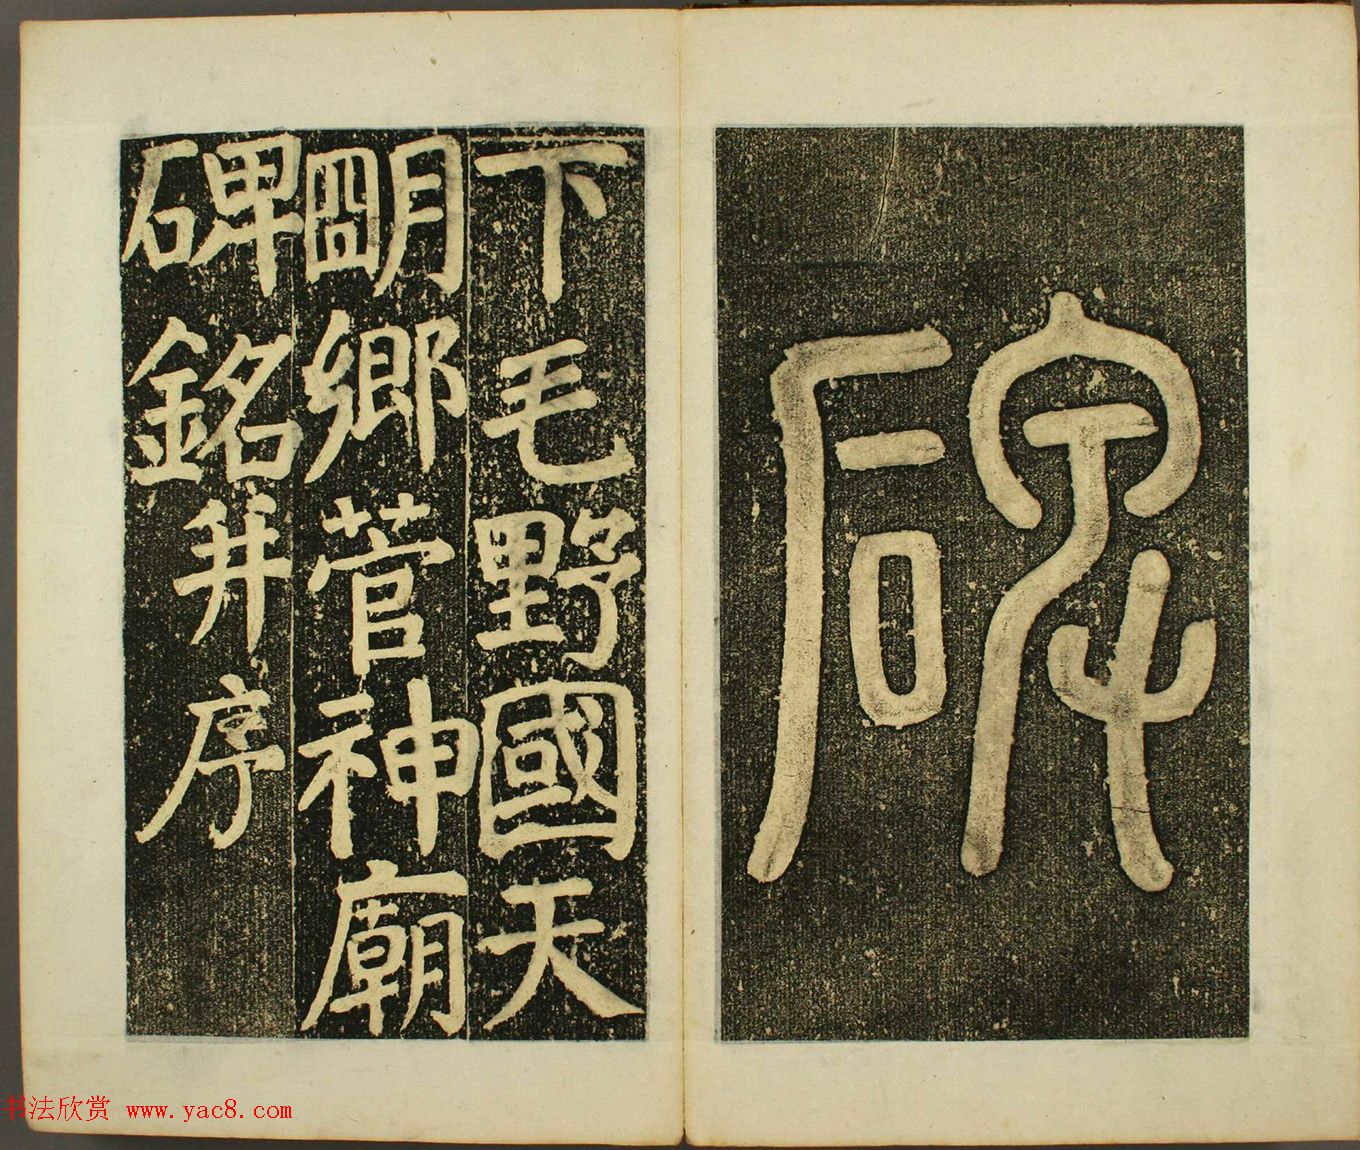 碑
下毛野國天
朙鄉菅神廟
碑銘并序
书法欣赏 www.yac8.com